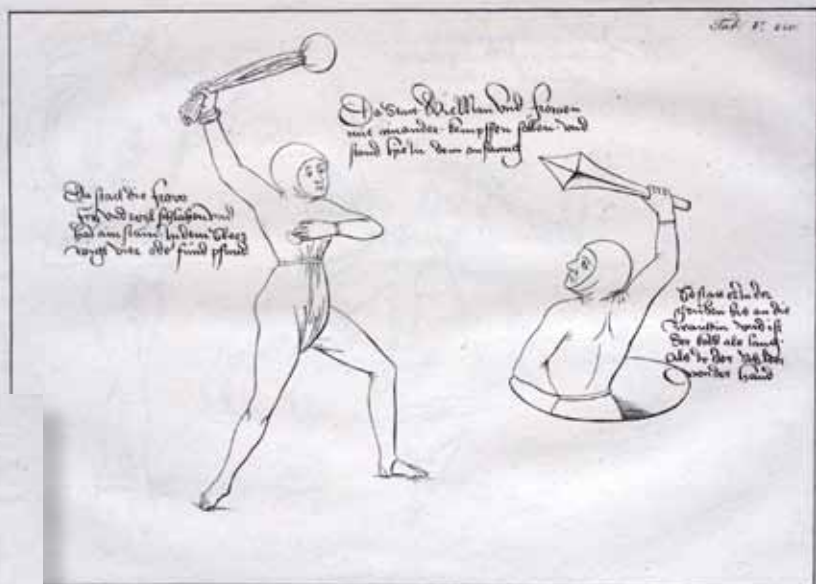 Tab. V.
Da Statt Wie Man und frowen
mit ainander kempffen söllen und
stand hie In dem anfang
Da stad die frow
fry und wyl schlahen und
had ain stain In dem Sleer
wigt vier ode fünf pfund
So statt er In der
gruben bis an die
waichin und ist
der kolb als lang
als Ir der Schleer
von der hand